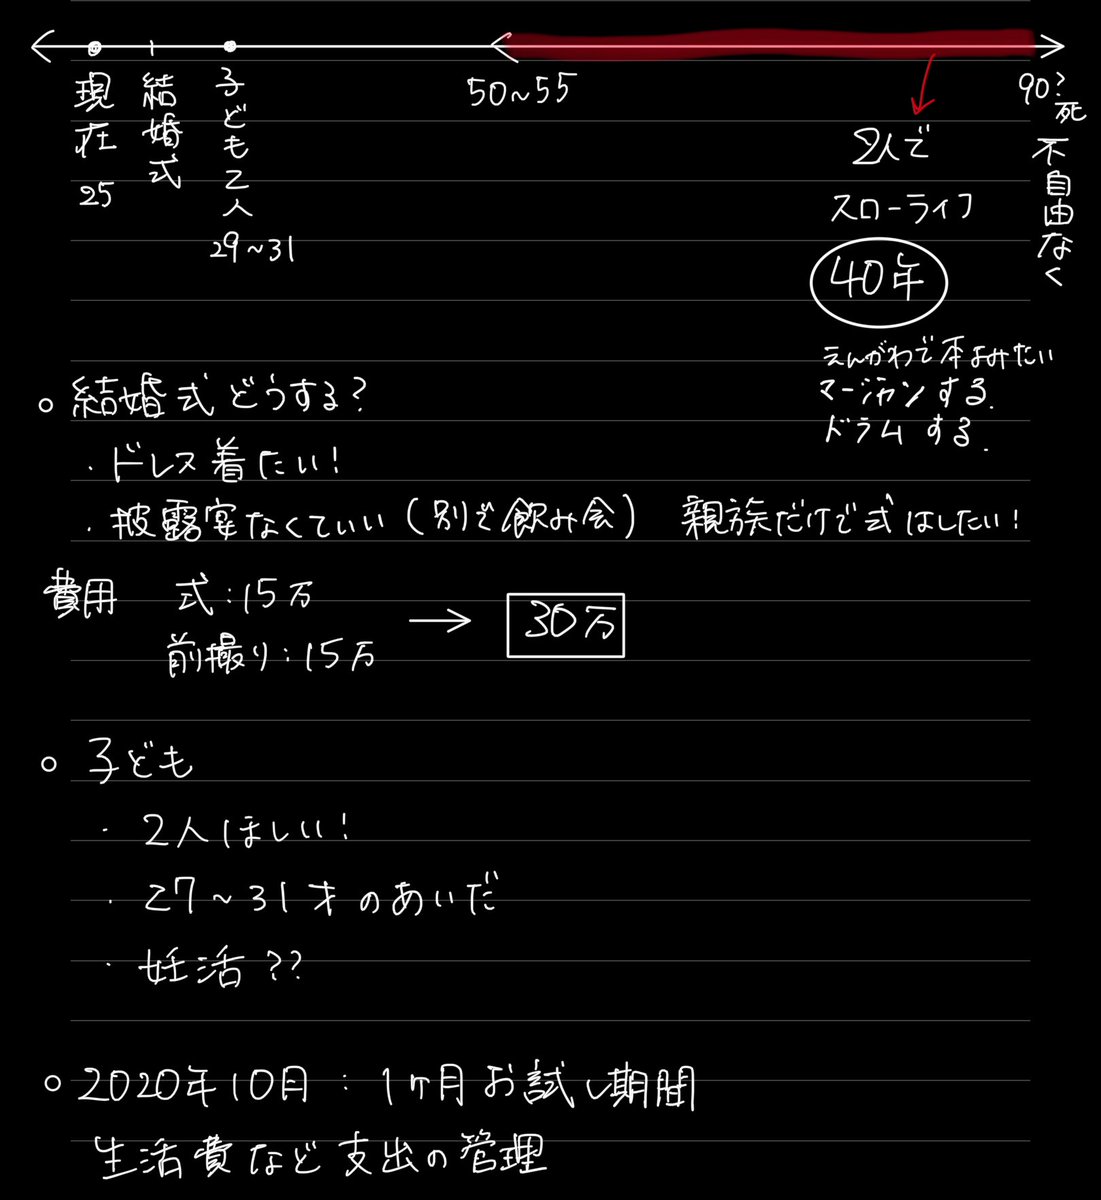 現在 25
結婚式
子ども2人
29~31
50~55
90?
死
不自由なく
2人で
スローライフ
40年
えんがわで本よみたい
マージャンする.
ドラムする.
○結婚式どうする?
・ドレス着たい!
・披露宴なくていい(別で飲み会) 親族だけで式はしたい!
費用 式:15万
前撮り:15万
→ 30万
○子ども
・2人ほしい!
・27~31才のあいだ
・妊活??
○2020年10月:1ヶ月お試し期間
生活費など支出の管理